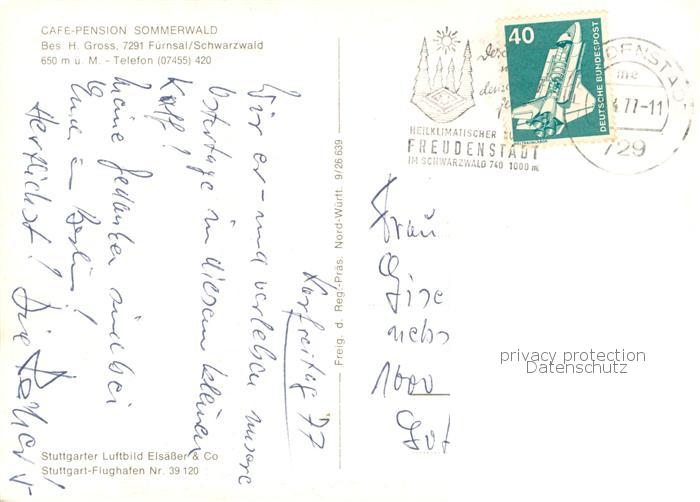 CAFÉ-PENSION SOMMERWALD
Bes. H. Gross, 7291 Fürnsal/Schwarzwald
650 m ü. M. - Telefon (07455) 420
Karfreitag 77
Wir er- und verleben unsere
Ostertage in diesem kleinen
Kaff!
Meine Gedanken sind bei
Euch in Berlin!
Herzlichst!
Stuttgarter Luftbild Elsäßer & Co
Stuttgart-Flughafen Nr. 39 120
Freig. d. Reg.-Präs. Nord-Württ. 9/26 639
HEILKLIMATISCHER
FREUDENSTADT
IM SCHWARZWALD 740 1000 m
40
DEUTSCHE BUNDESPOST
DENSTADT
me
4.77-11
729
Frau
Gise
1000
privacy protection
Datenschutz